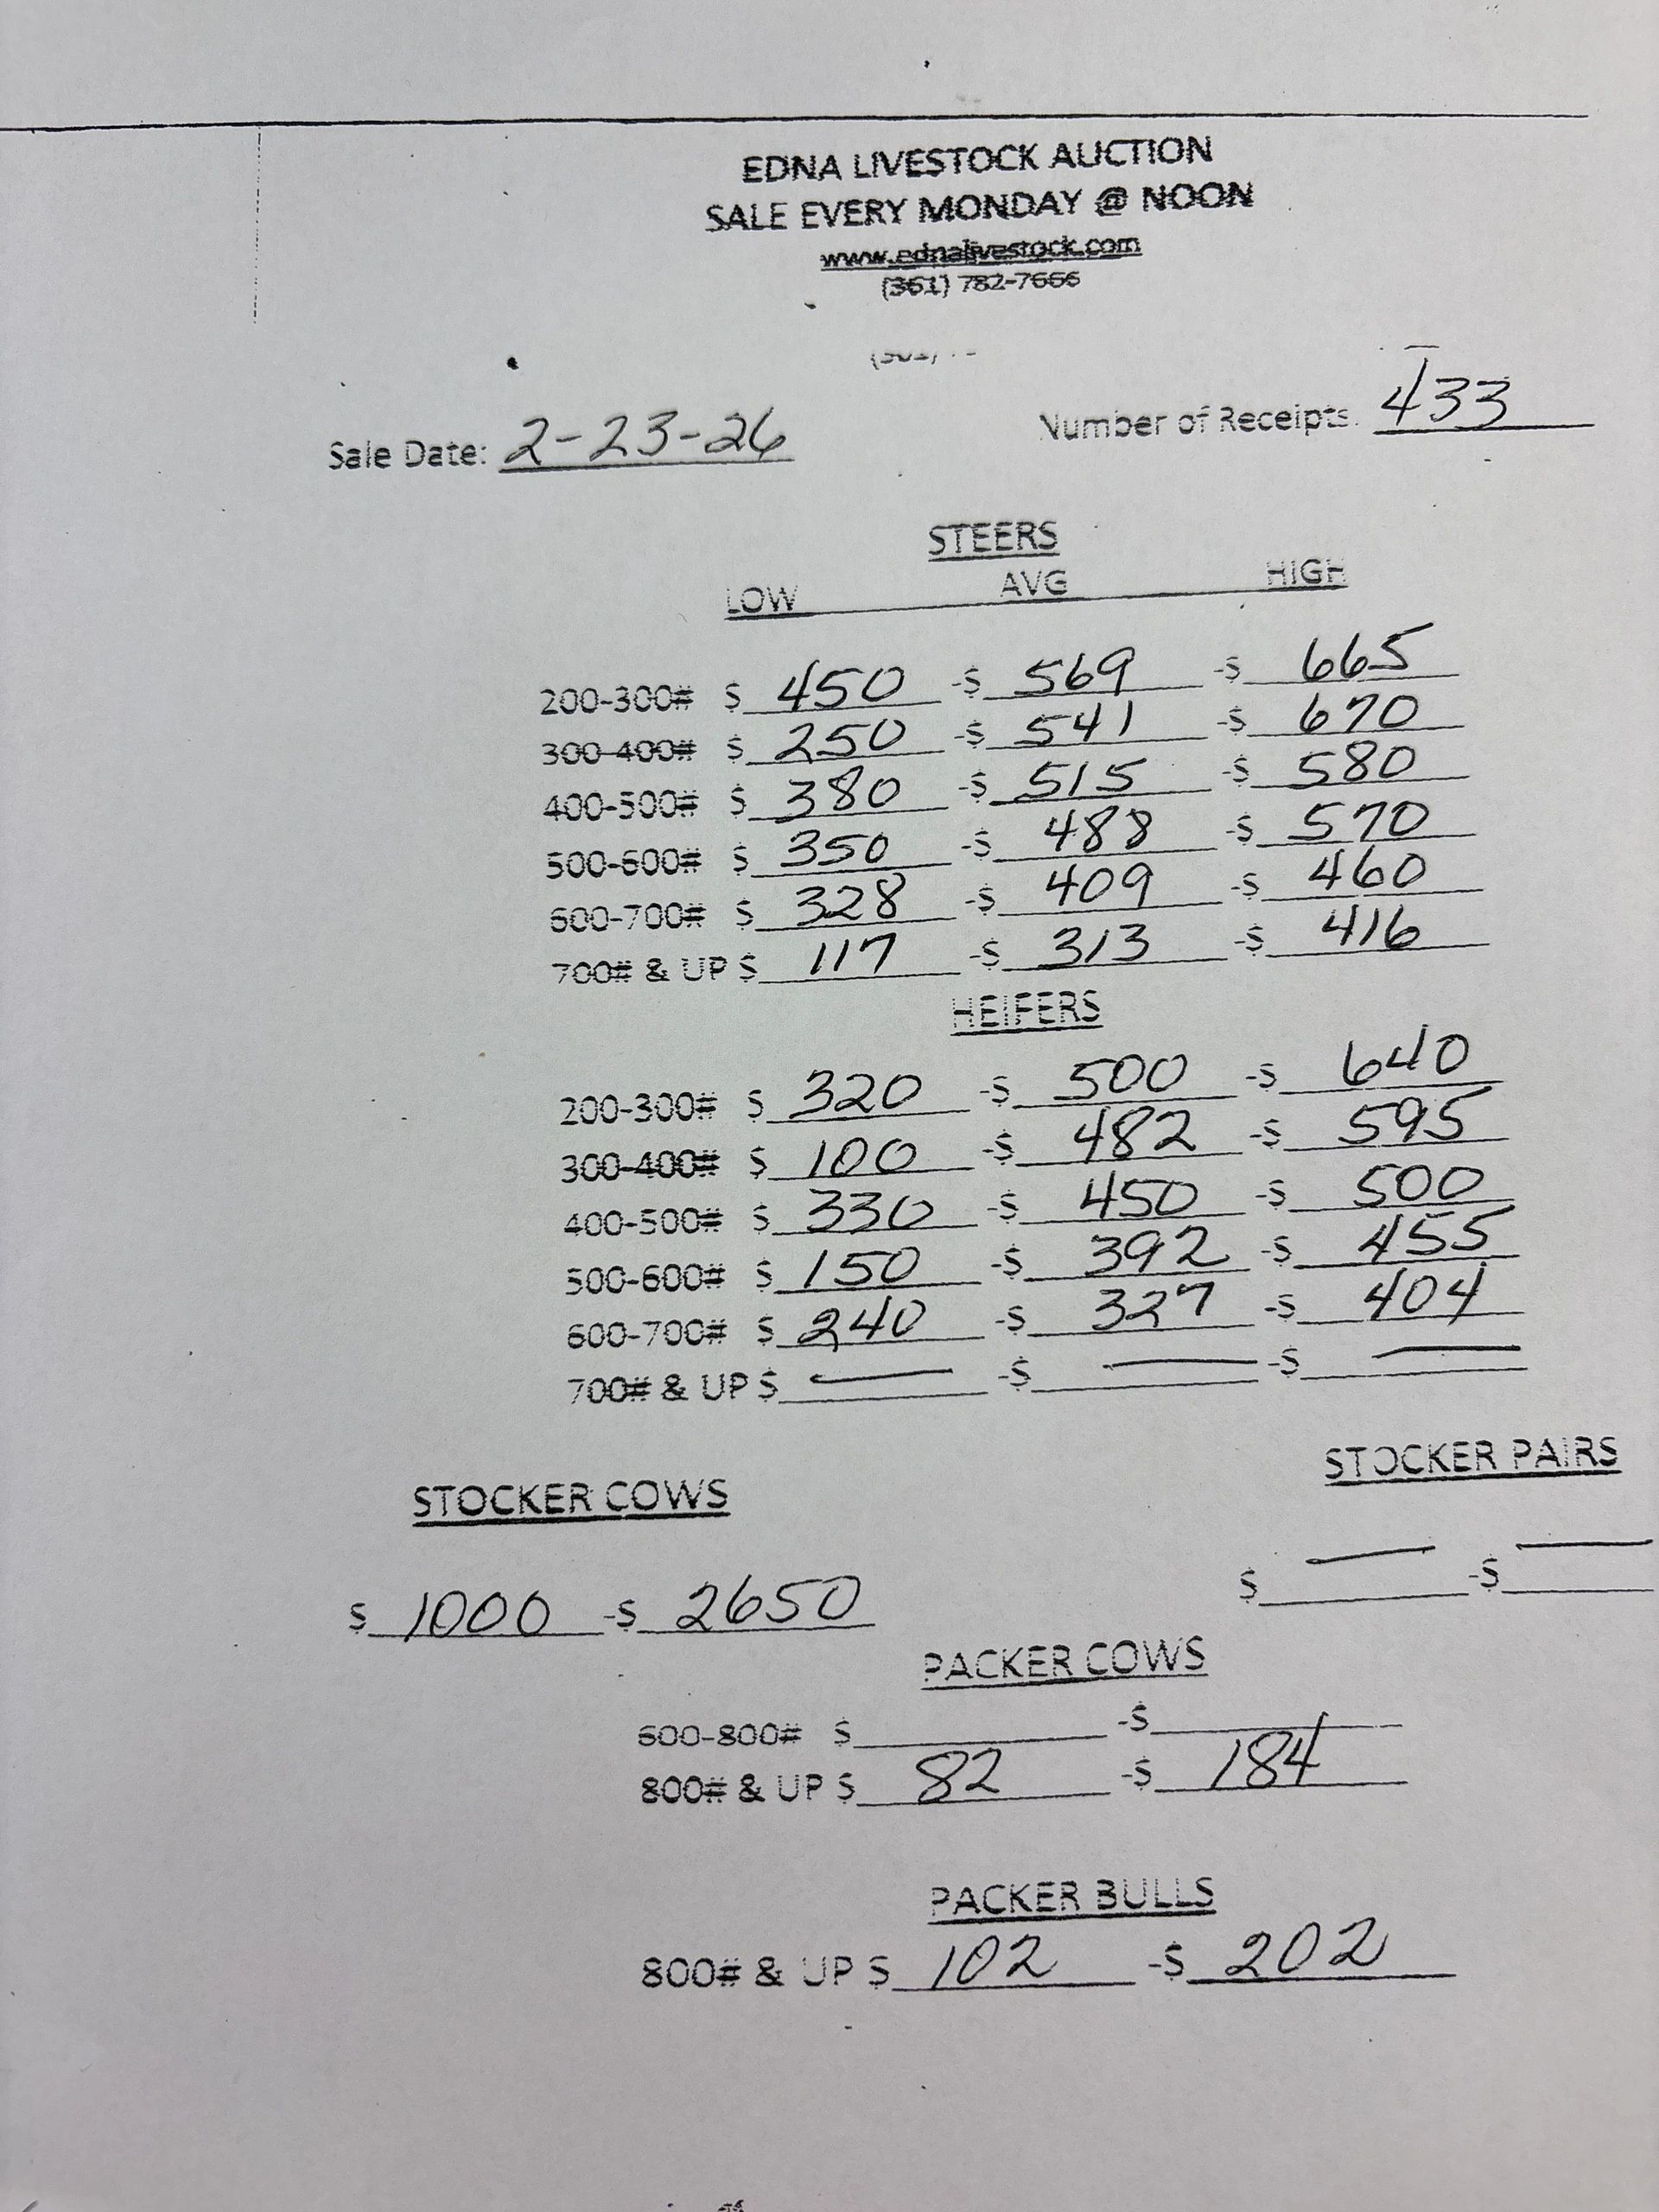 EDNA LIVESTOCK AUCTION
SALE EVERY MONDAY @ NOON
www.ednalivestock.com
(361) 782-7666
Sale Date: 2-23-26 Number of Receipts: 433
STEERS
LOW AVG HIGH
200-300# $ 450 -$ 569 -$ 665
300-400# $ 250 -$ 541 -$ 670
400-500# $ 380 -$ 515 -$ 580
500-600# $ 350 -$ 488 -$ 570
600-700# $ 328 -$ 409 -$ 460
700# & UP $ 117 -$ 313 -$ 416
HEIFERS
200-300# $ 320 -$ 500 -$ 640
300-400# $ 100 -$ 482 -$ 595
400-500# $ 330 -$ 450 -$ 500
500-600# $ 150 -$ 392 -$ 455
600-700# $ 240 -$ 327 -$ 404
700# & UP $ — -$ — -$ —
STOCKER COWS STOCKER PAIRS
$ 1000 -$ 2650 $ — -$ —
PACKER COWS
600-800# $ -$
800# & UP $ 82 -$ 184
PACKER BULLS
800# & UP $ 102 -$ 202